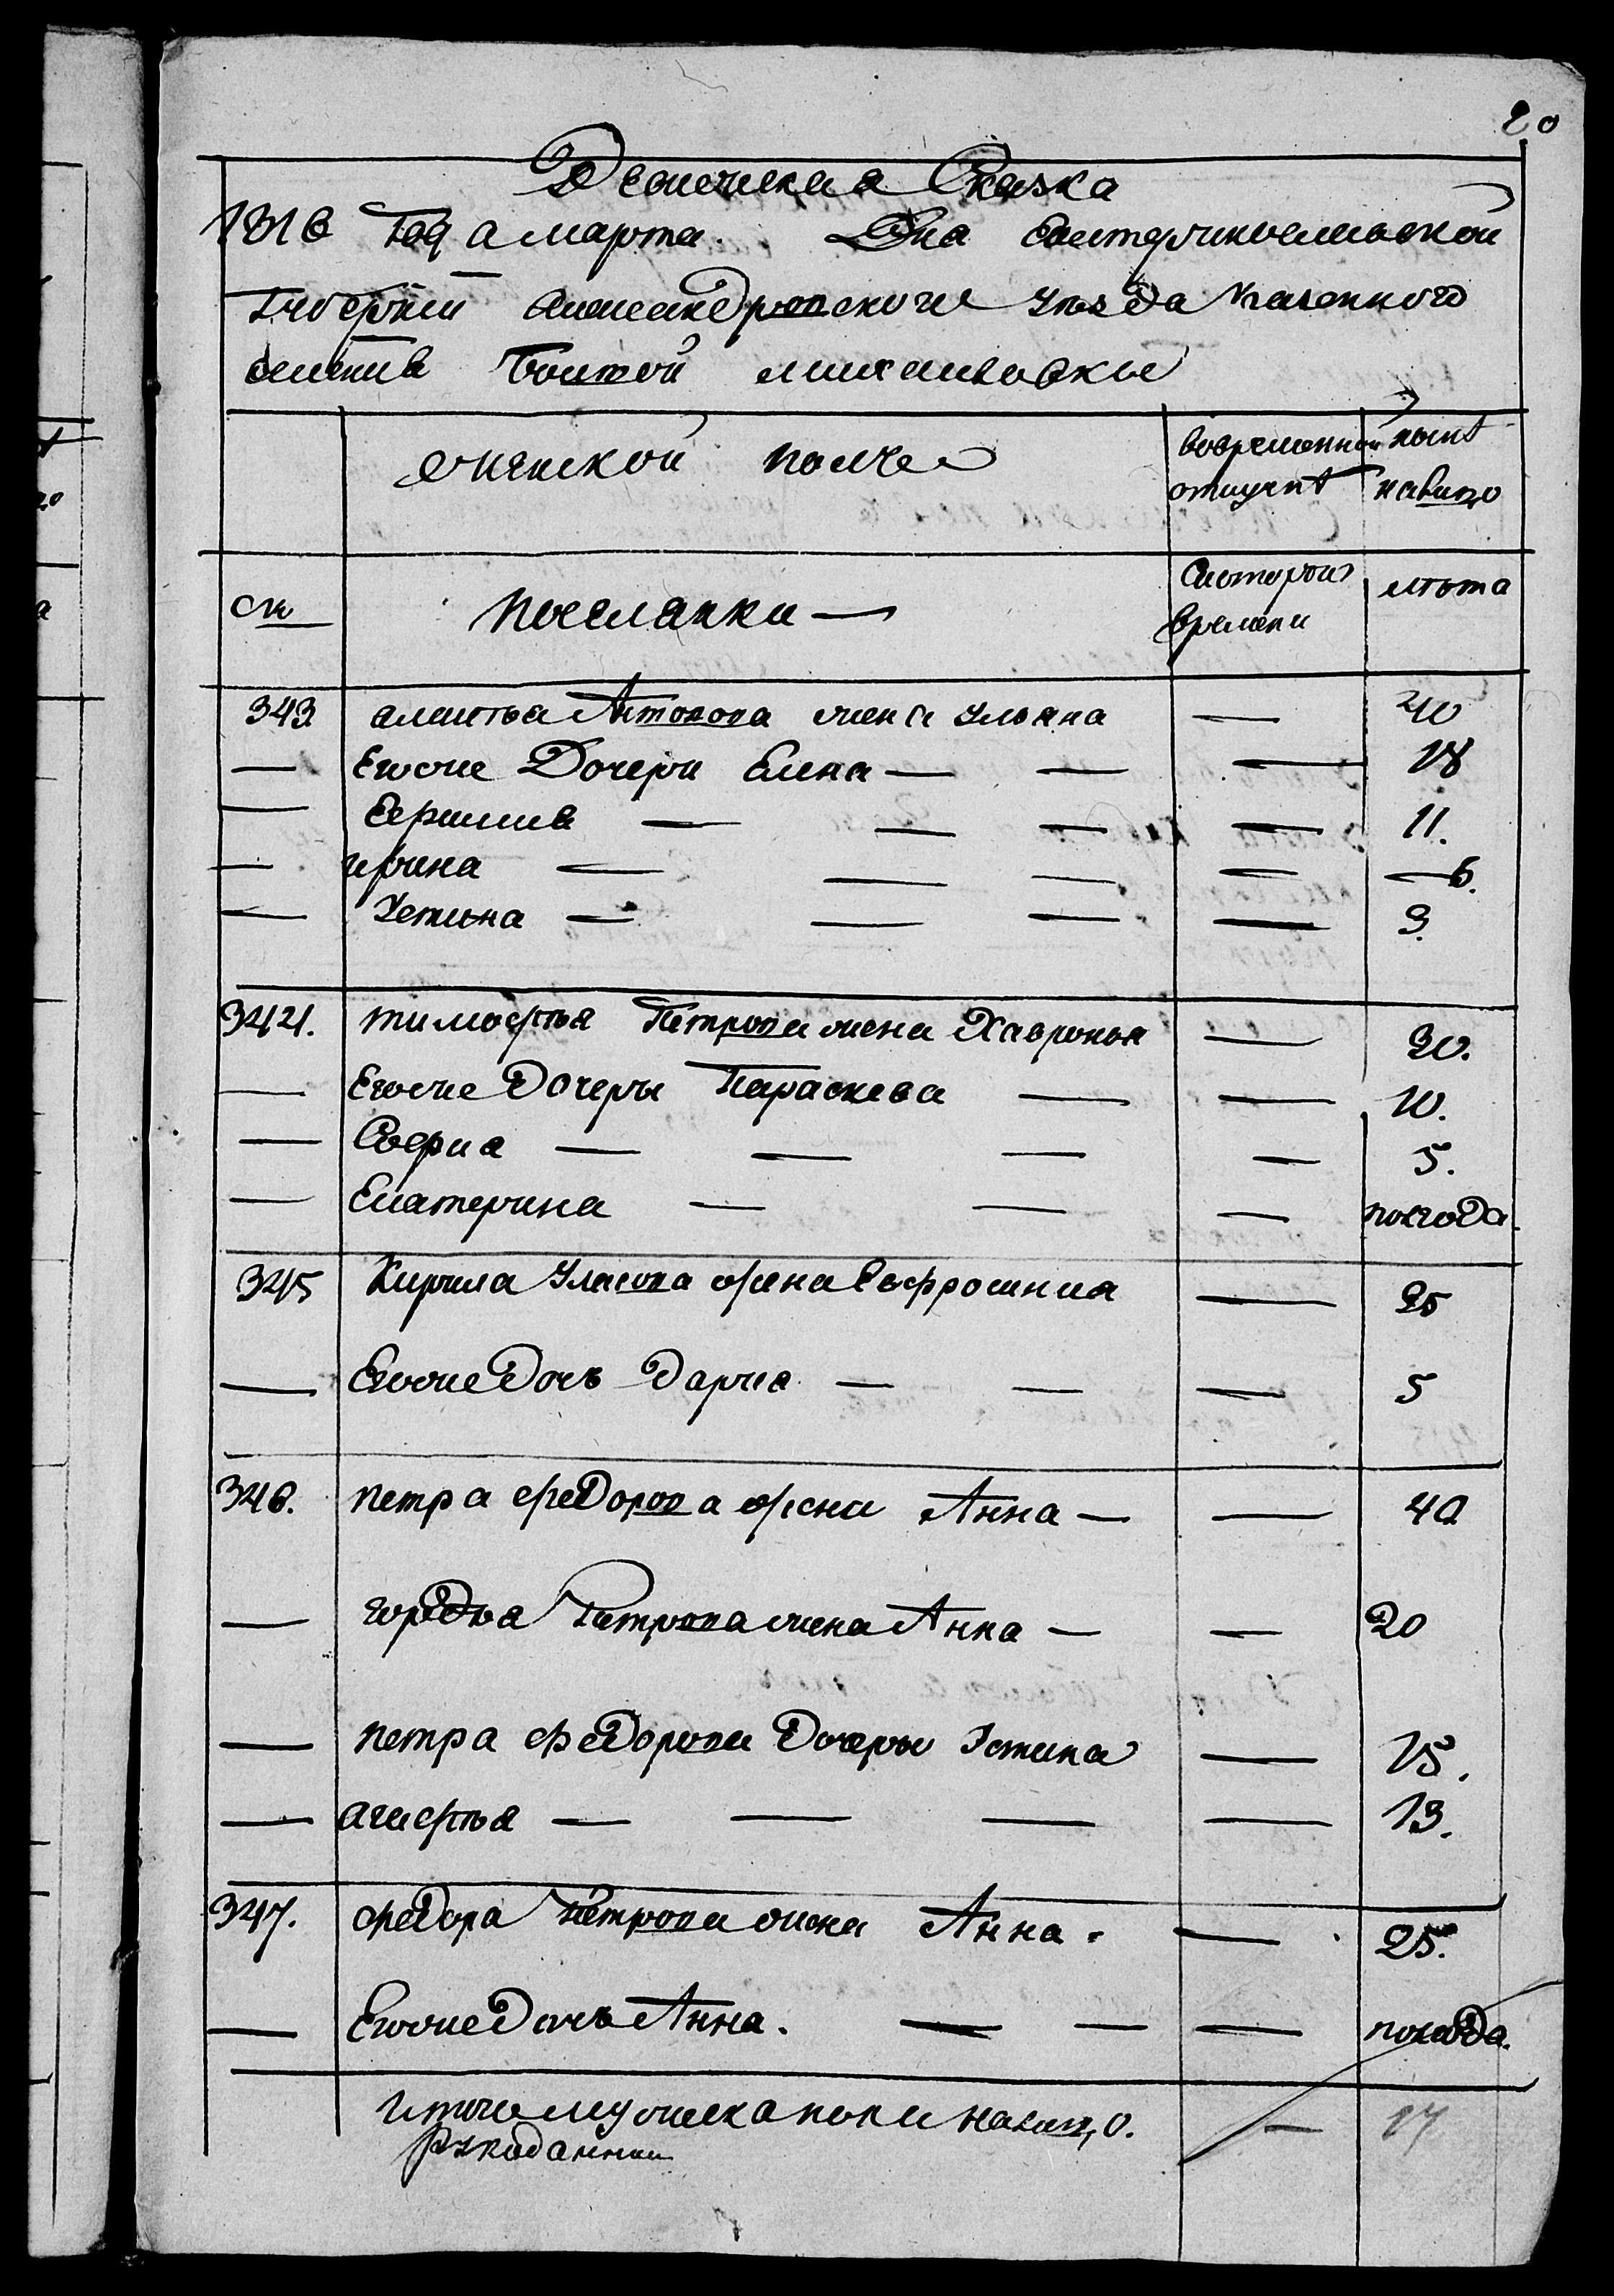 20
Ревическая Сказка
1816 Года марта Дня Екатеринославской
Губернии Александровского уезда казенного
селения Белой михайловки
Женской полъ
вовременной отлучкѣ
ныне налицо
си
поселянки —
Скоторого времени
лѣта
343 алексѣя Антонова жена Ульяна — 40
— Егоже Дочери Елена — — — 18
— — — — — 11.
— ирина — — — — 6.
— Устина — — — — 3.
344. тимофѣя Петрова жена Хавронья — 30.
— Егоже Дочеры Параскева — — 10.
— Софиа — — — — 5.
— Екатерина — — — полгода.
345 Кирила Уласова жена Евфросиниа — 25
— Егоже Дочь Дариа — — — 5
346. петра федорова жена Анна — — 40
— гордѣя Петрова жена Анна — — 20
— петра федорова Дочеры Устина — 15.
— агафѣя — — — — 13.
347. федора Петрова жена Анна. — 25.
— Егоже Дочь Анна. — — — полгода.
Итого женска пола налицо. — 17